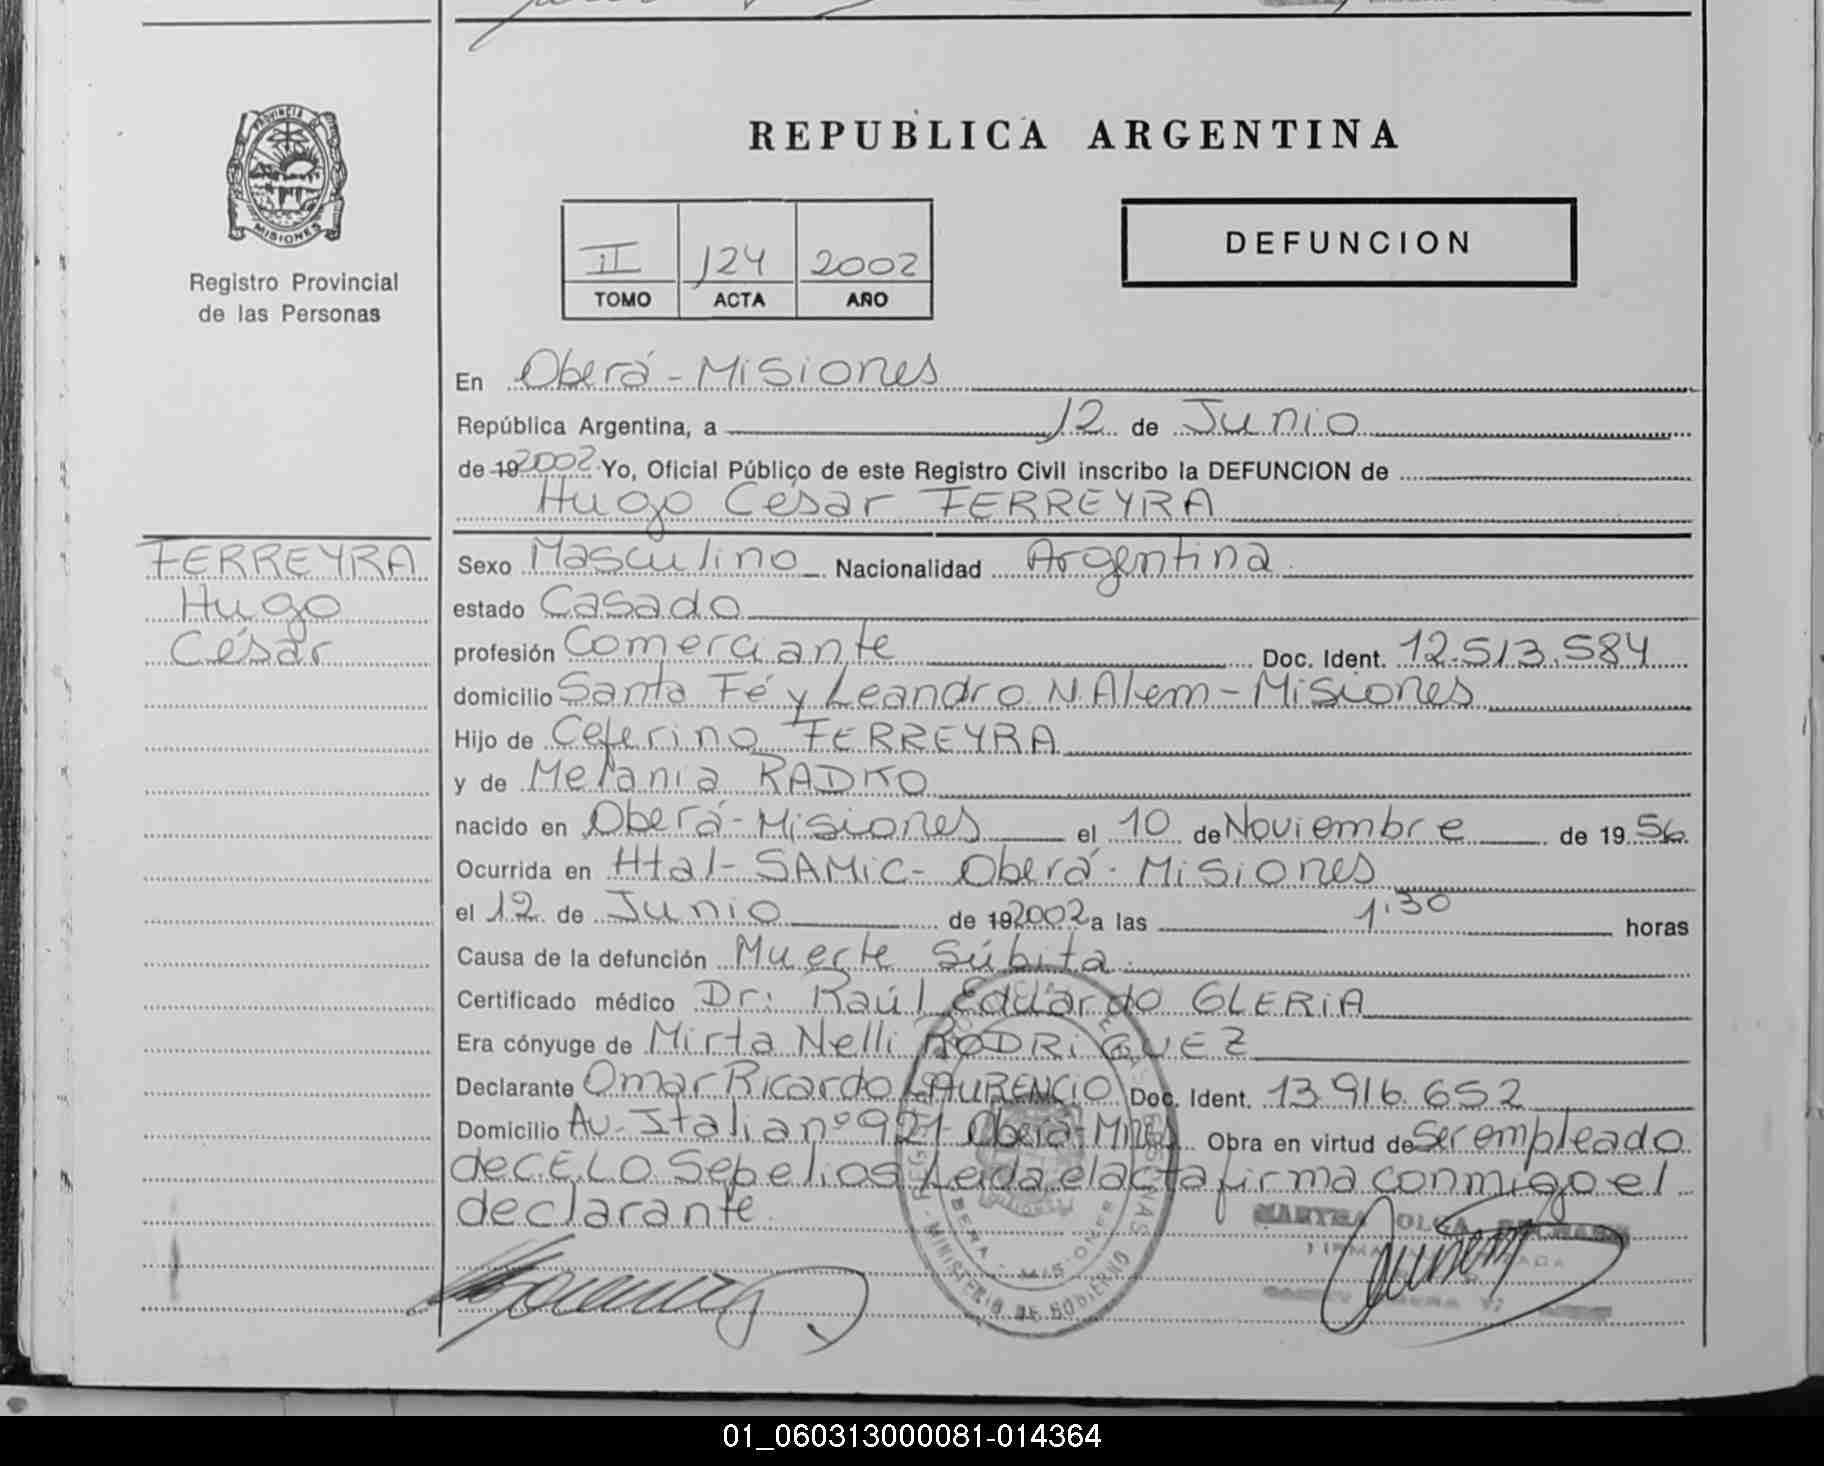 PROVINCIA DE
MISIONES
Registro Provincial
de las Personas
REPUBLICA ARGENTINA
II 124 2002
TOMO ACTA AÑO
DEFUNCION
En Oberá - Misiones
República Argentina, a 12 de Junio
de 19 2002 Yo, Oficial Público de este Registro Civil inscribo la DEFUNCION de
Hugo César FERREYRA
FERREYRA
Hugo
César
Sexo Masculino Nacionalidad Argentina
estado Casado
profesión Comerciante Doc. Ident. 12.513.584
domicilio Santa Fé y Leandro N. Alem - Misiones
Hijo de Ceferino FERREYRA
y de Melania RADKO
nacido en Oberá - Misiones el 10 de Noviembre de 19 56
Ocurrida en Htal - SAMiC - Oberá - Misiones
el 12 de Junio de 19 2002 a las 1:30 horas
Causa de la defunción Muerte Súbita
Certificado médico Dr: Raúl Eduardo GLERiA
Era cónyuge de Mirta Nelli RODRiGUEZ
Declarante Omar Ricardo LAURENCiO Doc. Ident. 13.916.652
Domicilio Av. Italia nº 921 - Oberá - Mnes Obra en virtud de Ser empleado
de C.E.L.O. Sepelios Leida el acta firma conmigo el
declarante.
MINISTERIO DE GOBIERNO
OBERA - MISIONES
MARTHA OLGA
01_060313000081-014364